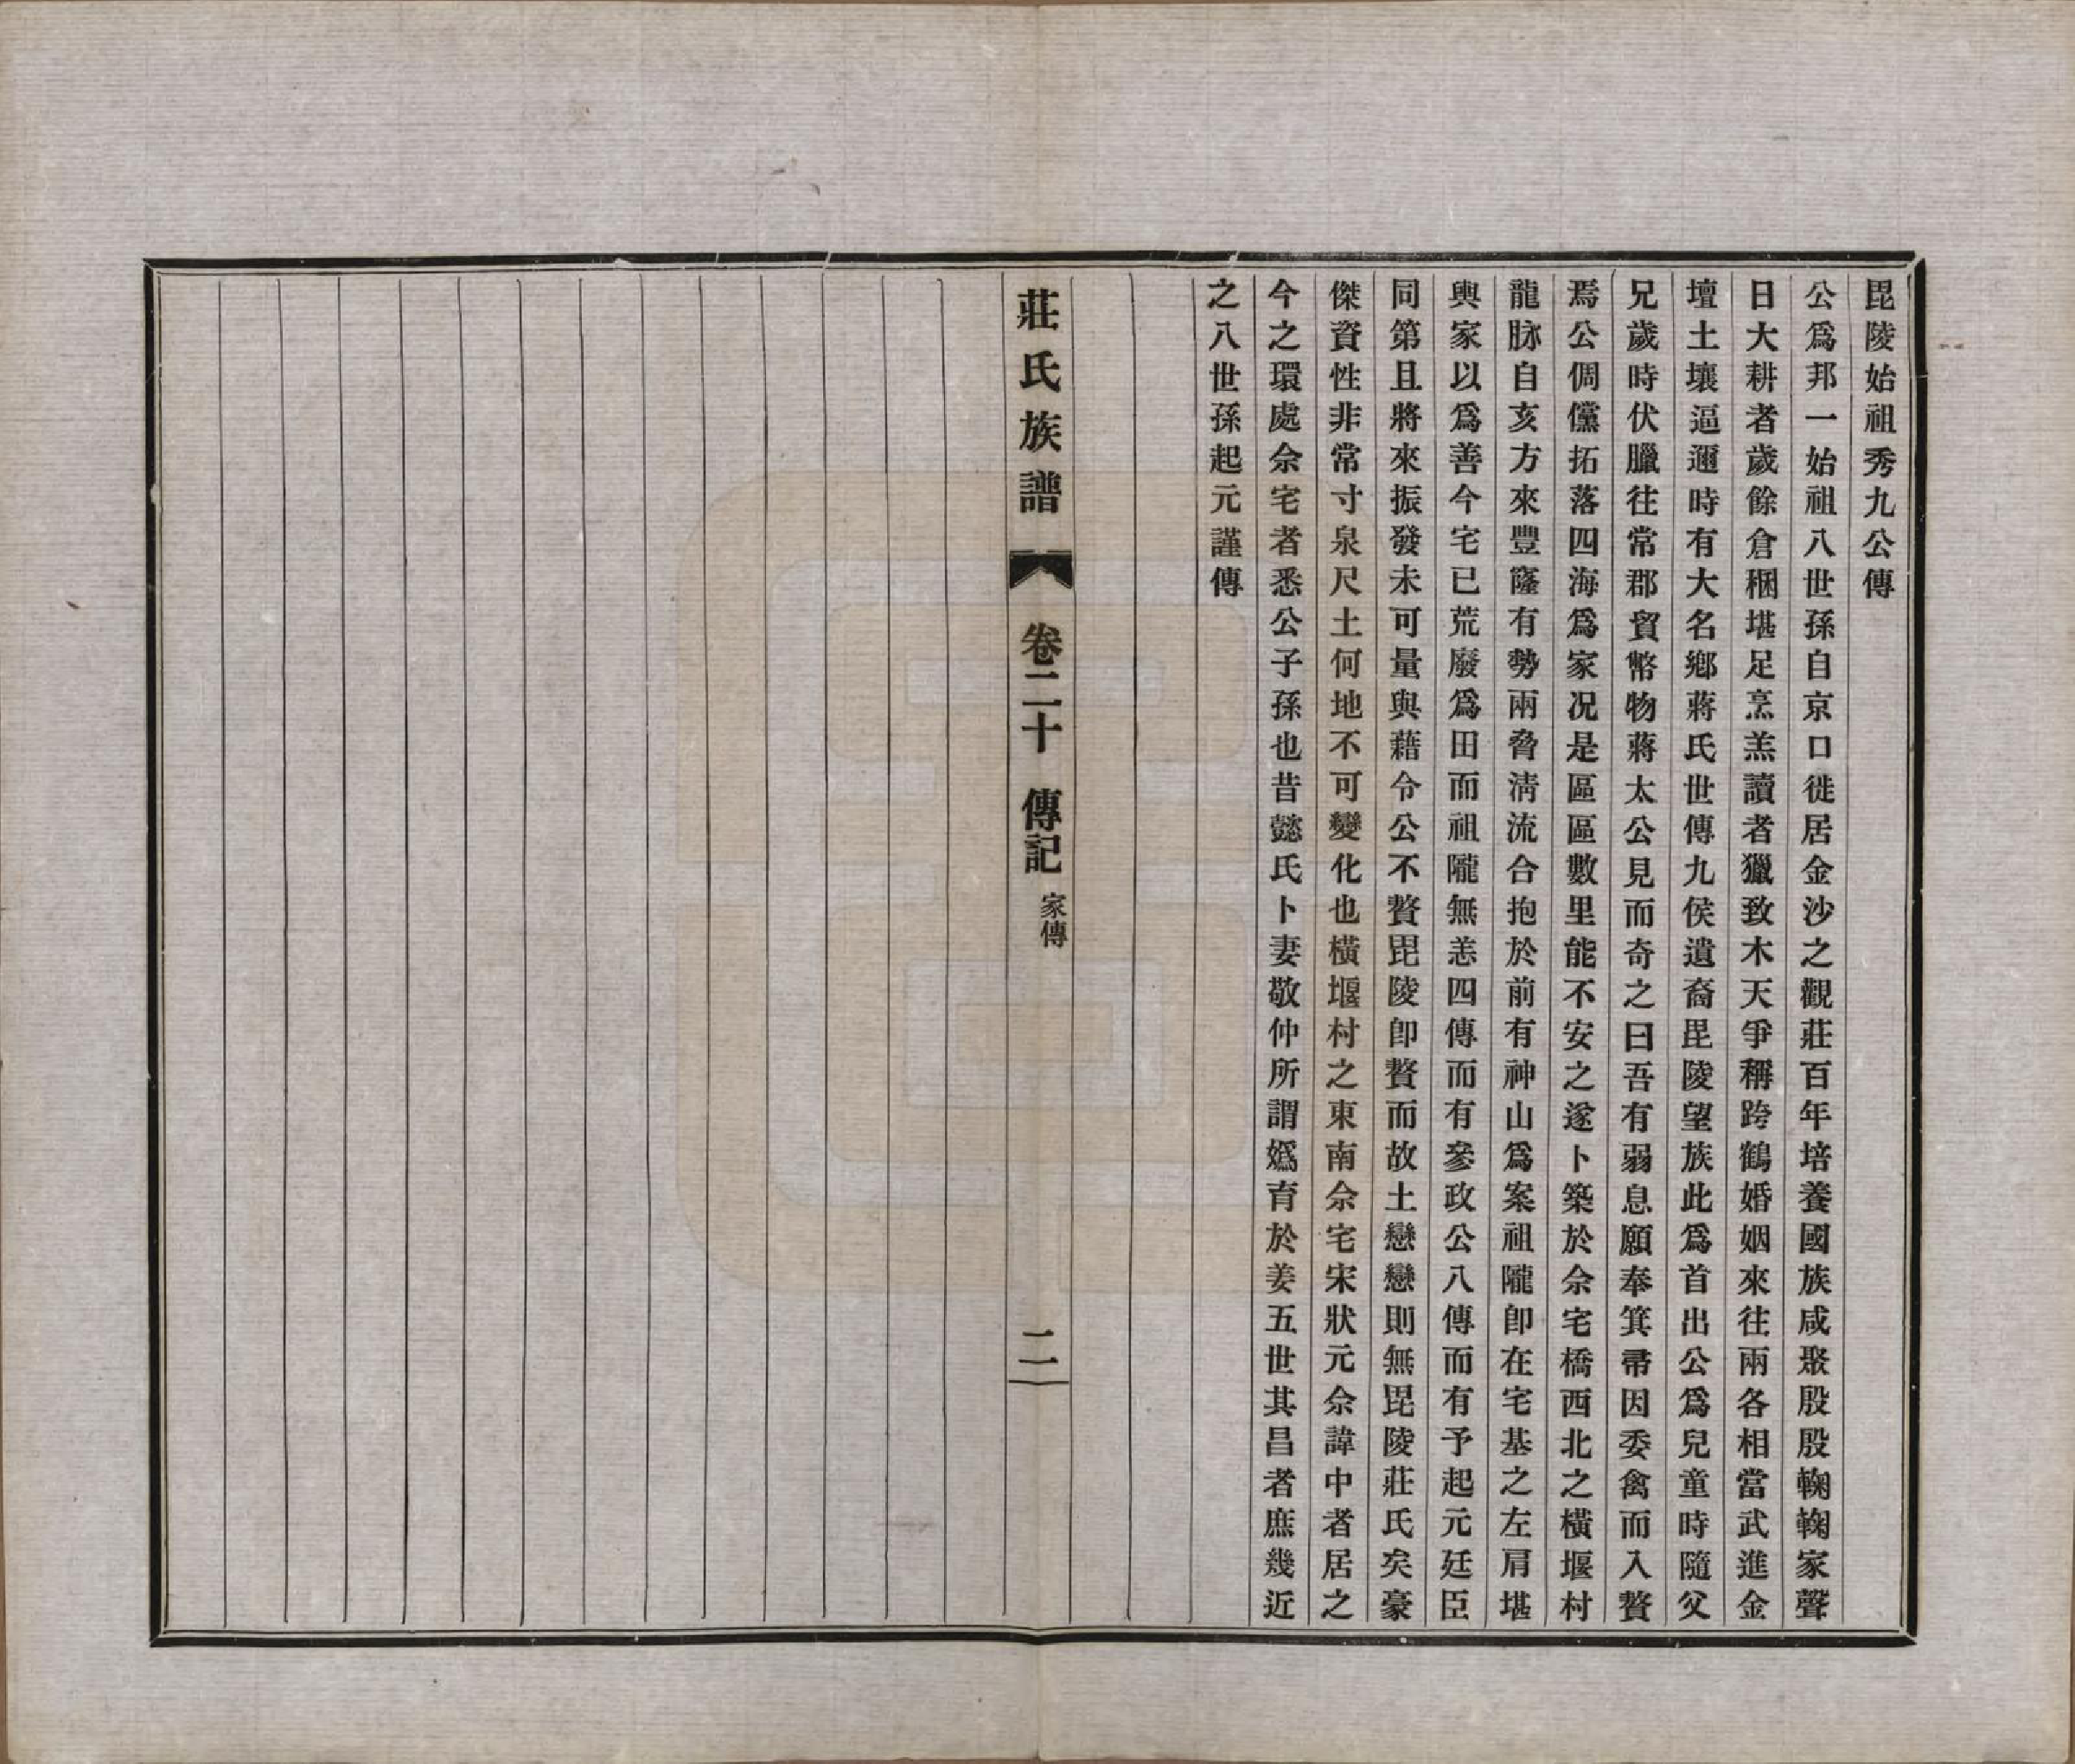 毘陵始祖秀九公傳
公爲邦一始祖八世孫自京口徙居金沙之觀莊百年培養國族咸聚殷殷輷輷家聲
日大耕者歲餘倉稇堪足烹羔讀者獵致木天爭稱跨鶴婚姻來往兩各相當武進金
壇土壤逼邇時有大名鄉蔣氏世傳九侯遺裔毘陵望族此爲首出公爲兒童時隨父
兄歲時伏臘往常郡貿幣物蔣太公見而奇之曰吾有弱息願奉箕帚因委禽而入贅
焉公倜儻拓落四海爲家况是區區數里能不安之遂卜築於佘宅橋西北之橫堰村
龍脉自亥方來豐窿有勢兩脅淸流合抱於前有神山爲案祖隴卽在宅基之左肩堪
輿家以爲善今宅已荒廢爲田而祖隴無恙四傳而有參政公八傳而有予起元廷臣
同第且將來振發未可量與藉令公不贅毘陵卽贅而故土戀戀則無毘陵莊氏矣豪
傑資性非常寸泉尺土何地不可變化也橫堰村之東南佘宅宋狀元佘諱中者居之
今之環處佘宅者悉公子孫也昔懿氏卜妻敬仲所謂嬀育於姜五世其昌者庶幾近
之八世孫起元謹傳
莊氏族譜 卷二十 傳記 家傳 二